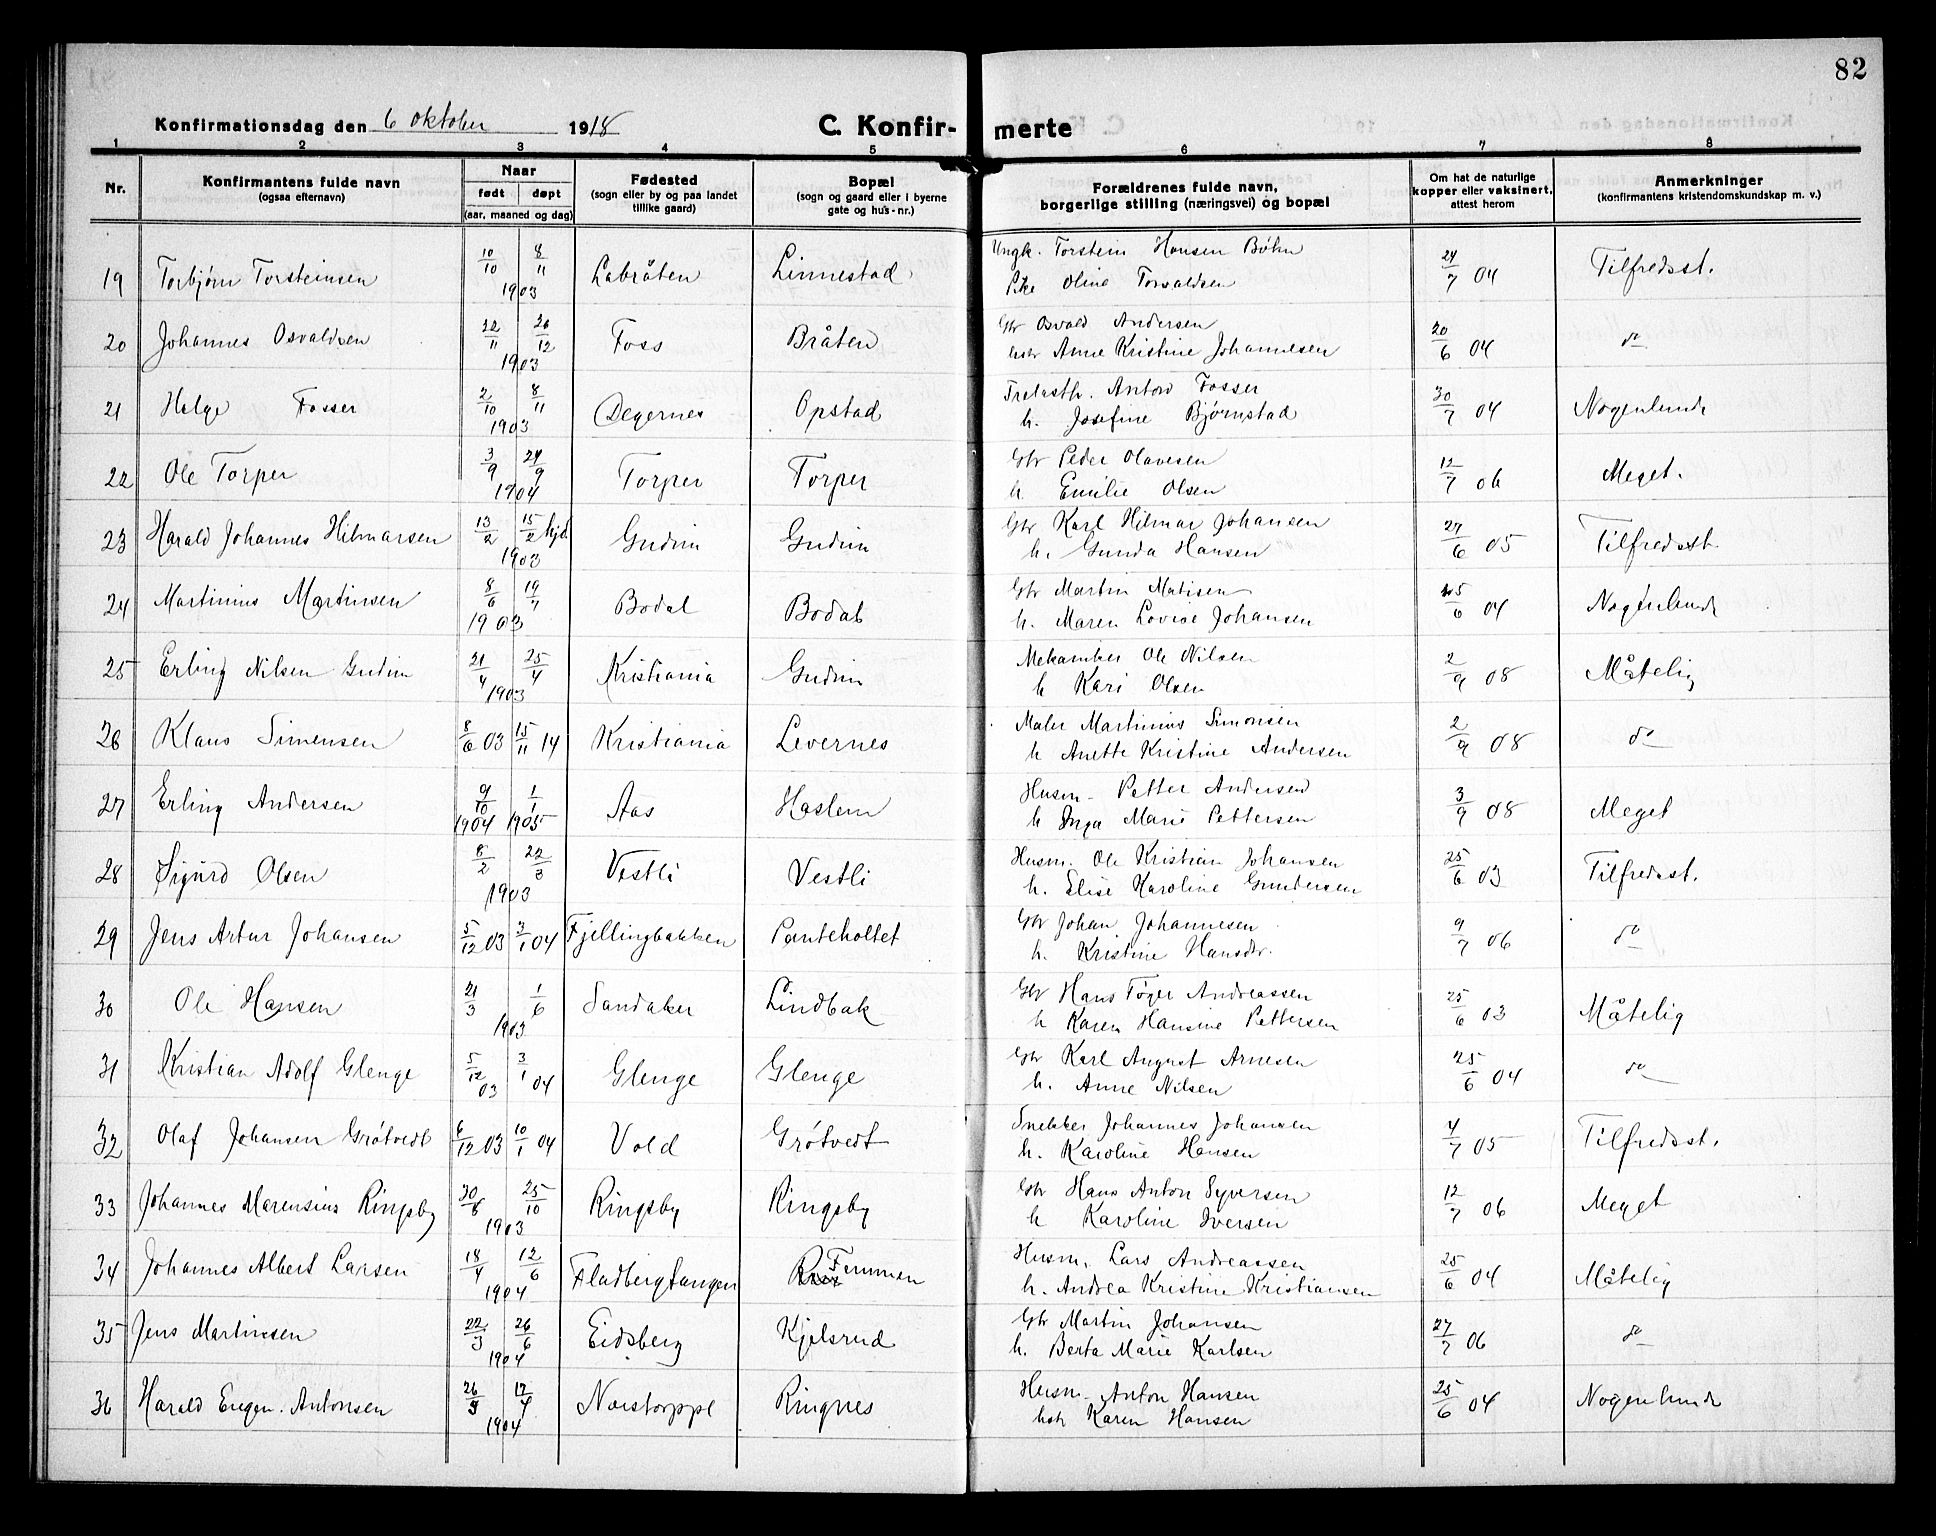 82
Konfirmationsdag den 6 oktober 1918
C. Konfirmerte
1 2 3 4 5 6 7 8
Nr.
Konfirmantens fulde navn
(ogsaa efternavn)
Naar
født døpt
(aar, maaned og dag)
Fødested
(sogn eller by og paa landet
tillike gaard)
Bopæl
(sogn og gaard eller i byerne
gate og hus-nr.)
Forældrenes fulde navn,
borgerlige stilling (næringsvei) og bopæl
Om hat de naturlige
kopper eller vaksinert,
attest herom
Anmerkninger
(konfirmantens kristendomskundskap m. v.)
19 Torbjørn Torsteinsen 10/10 8/11 1903 Labråten Linnestad Ungk. Torstein Hansen Bøhn 24/7 04 Tilfredsst.
Pike Oline Torvaldsen
20 Johannes Osvaldsen 22/11 26/12 1903 Foss Bråten Gbr Osvald Andersen 20/6 04 do
hstr Anne Kristine Johannesen
21 Helge Fosser 2/10 8/11 1903 Degernes Opstad Fredasth. Anton Fosser 30/7 04 Nogenlunde
h. Josefine Bjørnstad
22 Ole Torper 3/9 24/9 1904 Torper Torper Gbr Peder Olavesen 12/7 06 Meget.
h Emilie Olsen
23 Harald Johannes Hilmarsen 13/2 15/2 hjd. 1903 Gudim Gudim Gbr Karl Hilmar Johansen 27/6 05 Tilfredsst.
h. Gunda Hansen
24 Martinius Martinsen 8/6 19/7 1903 Bodal Bodal Gbr Martin Matisen 25/6 04 Nogenlunde
h. Maren Lovise Johansen
25 Erling Nilsen Gudim 21/4 25/4 1903 Kristiania Gudim Mekaniker Ole Nilsen 2/9 08 Måtelig
h Kari Olsen
26 Klaus Simensen 8/6 03 15/11 14 Kristiania Levernes Maler Martinius Simonsen 2/9 08 do
h Anette Kristine Andersen
27 Erling Andersen 9/10 1904 1/1 1905 Aas Haslem Husm. Petter Andersen 3/9 08 Meget
h Inga Marie Pettersen
28 Sigurd Olsen 8/2 22/3 1903 Vestli Vestli Husm. Ole Kristian Johansen 25/6 03 Tilfredsst.
h. Elise Karoline Gundersen
29 Jens Artur Johansen 5/12 03 3/1 04 Fjellingbakken Panteholtet Gbr Johan Johannesen 9/7 06 do
h. Kristine Hansdr.
30 Ole Hansen 21/3 1/6 1903 Sandaker Lindbak Gbr Hans Tøger Andreassen 25/6 03 Måtelig
h Karen Hansine Pettersen
31 Kristian Adolf Glenge 5/12 03 3/1 04 Glenge Glenge Gbr Karl August Arnesen 25/6 04 do
h. Anne Nilsen
32 Olaf Johansen Grøtvedt 6/12 03 10/1 04 Vold Grøtvedt Snekker Johannes Johansen 4/7 05 Tilfredsst.
h. Karoline Hansen
33 Johannes Marensius Ringsby 30/8 25/10 1903 Ringsby Ringsby Gbr Hans Anton Syversen 12/7 06 Meget
h Karoline Iversen
34 Johannes Albert Larsen 18/4 12/6 1904 Fladbergtangen Femmen Husm. Lars Andreassen 25/6 04 Måtelig
h. Andrea Kristine Kristiansen
35 Jens Martinsen 22/3 26/6 1904 Eidsberg Kjelsrud Gbr Martin Johansen 27/7 06 do
h. Berta Marie Karlsen
36 Harald Eugen Antonsen 26/3 17/4 1904 Norstorppl Ringnes Husm. Anton Hansen 25/6 04 Nogenlunde
hstr Karen Hansen